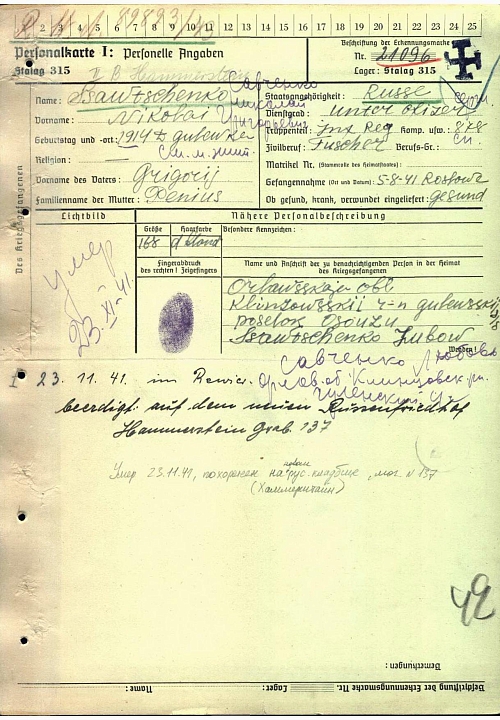 82823/43
1 2 3 4 5 6 7 8 9 10 11 12 13 14 15 16 17 18 19 20 21 22 23 24 25
Personalkarte I: Personelle Angaben
Beschriftung der Erkennungsmarke
Nr. 21096
Stalag 315
II B Hammerstein
Lager: Stalag 315
Des Kriegsgefangenen
Name: Sawtschenko
Савченко
Vorname: Nikolai
Николай
Григорьевич
Geburtstag und -ort: 1914
См. м. жит.
Religion: —
Vorname des Vaters: Grigorij
Familienname der Mutter:
Staatsangehörigkeit: Russe
Dienstgrad: Unteroffizier
Truppenteil: Inf Reg Komp. usw.: 878
Zivilberuf: Berufs-Gr.:
Matrikel Nr. (Stammrolle des Heimatstaates):
Gefangennahme (Ort und Datum): 5-8-41
Ob gesund, krank, verwundet eingeliefert: Gesund
Lichtbild
Nähere Personalbeschreibung
Größe Haarfarbe Besondere Kennzeichen:
168 d'blond
Fingerabdruck
des rechten! Zeigefingers
Name und Anschrift der zu benachrichtigenden Person in der Heimat
des Kriegsgefangenen
Умер
23.XI-41.
obl
poselok
Sawtschenko Lubow
Wenden!
Савченко Любовь
Орлов. об Клинцовск. рн.
23. 11. 41. im Revier.
beerdigt auf dem neuen Russenfriedhof
Hammerstein Grab. 137
новом
Умер 23.11.41, похоронен на рус. кладбище, мог. N 137
(Хаммерштайн)
49
Bemerkungen:
Beschriftung der Erkennungsmarke Nr. Lager: Name: